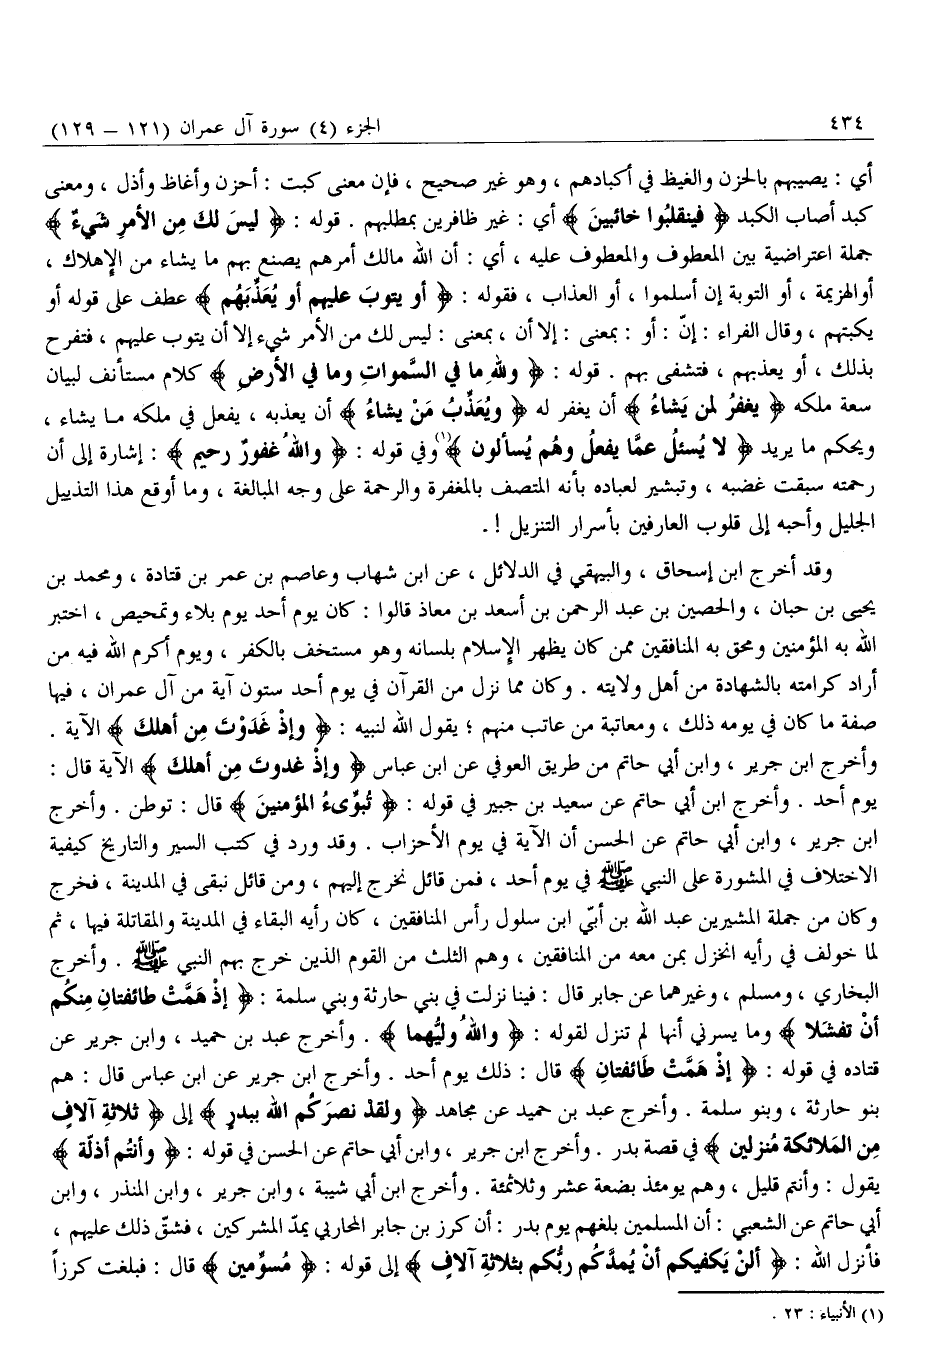 ٤٣٤ الجزء (٤) سورة آل عمران (١٢١ – ١٢٩)
أي : يصيبهم بالحزن والغيظ في أكبادهم ، وهو غير صحيح ، فإن معنى كبت : أحزن وأغاظ وأذل ، ومعنى
كبد أصاب الكبد ﴿ فينقلبُوا خائبينَ ﴾ أي : غير ظافرين بمطلبهم . قوله : ﴿ ليسَ لكَ مِن الأمرِ شَيءٌ ﴾
جملة اعتراضية بين المعطوف والمعطوف عليه ، أي : أن الله مالك أمرهم يصنع بهم ما يشاء من الإهلاك ،
أوالهزيمة ، أو التوبة إن أسلموا ، أو العذاب ، فقوله : ﴿ أو يتوبَ عليهم أو يُعَذِّبَهُم ﴾ عطف على قوله أو
يكبتهم ، وقال الفراء : إنّ : أو : بمعنى : إلا أن ، بمعنى : ليس لك من الأمر شيء إلا أن يتوب عليهم ، فتفرح
بذلك ، أو يعذبهم ، فتشفى بهم . قوله : ﴿ وللهِ ما في السَّموات وما في الأرضِ ﴾ كلام مستأنف لبيان
سعة ملكه ﴿ يغفرُ لمن يَشاءُ ﴾ أن يغفر له ﴿ ويُعَذِّبُ مَنْ يشاءُ ﴾ أن يعذبه ، يفعل في ملكه ما يشاء ،
ويحكم ما يريد ﴿ لا يُسئلُ عمَّا يفعلُ وهُم يُسألون ﴾(١) وفي قوله : ﴿ واللهُ غفورٌ رحيم ﴾ : إشارة إلى أن
رحمته سبقت غضبه ، وتبشير لعباده بأنه المتصف بالمغفرة والرحمة على وجه المبالغة ، وما أوقع هذا التذييل
الجليل وأحبه إلى قلوب العارفين بأسرار التنزيل ! .
وقد أخرج ابن إسحاق ، والبيهقي في الدلائل ، عن ابن شهاب وعاصم بن عمر بن قتادة ، ومحمد بن
يحيى بن حبان ، والحصين بن عبد الرحمن بن أسعد بن معاذ قالوا : كان يوم أحد يوم بلاء وتمحيص ، اختبر
الله به المؤمنين ومحق به المنافقين ممن كان يظهر الإسلام بلسانه وهو مستخف بالكفر ، ويوم أكرم الله فيه من
أراد كرامته بالشهادة من أهل ولايته . وكان مما نزل من القرآن في يوم أحد ستون آية من آل عمران ، فيها
صفة ما كان في يومه ذلك ، ومعاتبة من عاتب منهم ؛ يقول الله لنبيه : ﴿ وإذْ غَدَوْتَ مِن أهلكَ ﴾ الآية .
وأخرج ابن جرير ، وابن أبي حاتم من طريق العوفي عن ابن عباس ﴿ وإذْ غدوتَ مِن أهلكَ ﴾ الآية قال :
يوم أحد . وأخرج ابن أبي حاتم عن سعيد بن جبير في قوله : ﴿ تُبَوِّىءُ المؤمنينَ ﴾ قال : توطن . وأخرج
ابن جرير ، وابن أبي حاتم عن الحسن أن الآية في يوم الأحزاب . وقد ورد في كتب السير والتاريخ كيفية
الاختلاف في المشورة على النبي ﷺ في يوم أحد ، فمن قائل نخرج إليهم ، ومن قائل نبقى في المدينة ، فخرج
وكان من جملة المشيرين عبد الله بن أبيّ ابن سلول رأس المنافقين ، كان رأيه البقاء في المدينة والمقاتلة فيها ، ثم
لما خولف في رأيه انخزل بمن معه من المنافقين ، وهم الثلث من القوم الذين خرج بهم النبي ﷺ . وأخرج
البخاري ، ومسلم ، وغيرهما عن جابر قال : فينا نزلت في بني حارثة وبني سلمة : ﴿ إذْ هَمَّتْ طائفتانِ مِنكُم
أنْ تفشلا ﴾ وما يسرني أنها لم تنزل لقوله : ﴿ واللهُ وليُّهما ﴾ . وأخرج عبد بن حميد ، وابن جرير عن
قتاده في قوله : ﴿ إذْ هَمَّتْ طَائفتانِ ﴾ قال : ذلك يوم أحد . وأخرج ابن جرير عن ابن عباس قال : هم
بنو حارثة ، وبنو سلمة . وأخرج عبد بن حميد عن مجاهد ﴿ ولقدْ نصرَكُم الله ببدرٍ ﴾ إلى ﴿ ثلاثةِ آلافٍ
مِن المَلائكة مُنزلين ﴾ في قصة بدر . وأخرج ابن جرير ، وابن أبي حاتم عن الحسن في قوله : ﴿ وأنتُم أذلّة ﴾
يقول : وأنتم قليل ، وهم يومئذ بضعة عشر وثلاثمئة . وأخرج ابن أبي شيبة ، وابن جرير ، وابن المنذر ، وابن
أبي حاتم عن الشعبي : أن المسلمين بلغهم يوم بدر : أن كرز بن جابر المحاربي يمدّ المشركين ، فشقّ ذلك عليهم ،
فأنزل الله : ﴿ ألنْ يَكفيكم أنْ يُمدَّكُم ربُّكم بثلاثةِ آلافٍ ﴾ إلى قوله : ﴿ مُسوِّمين ﴾ قال : فبلغت كرزاً
(١) الأنبياء : ٢٣ .